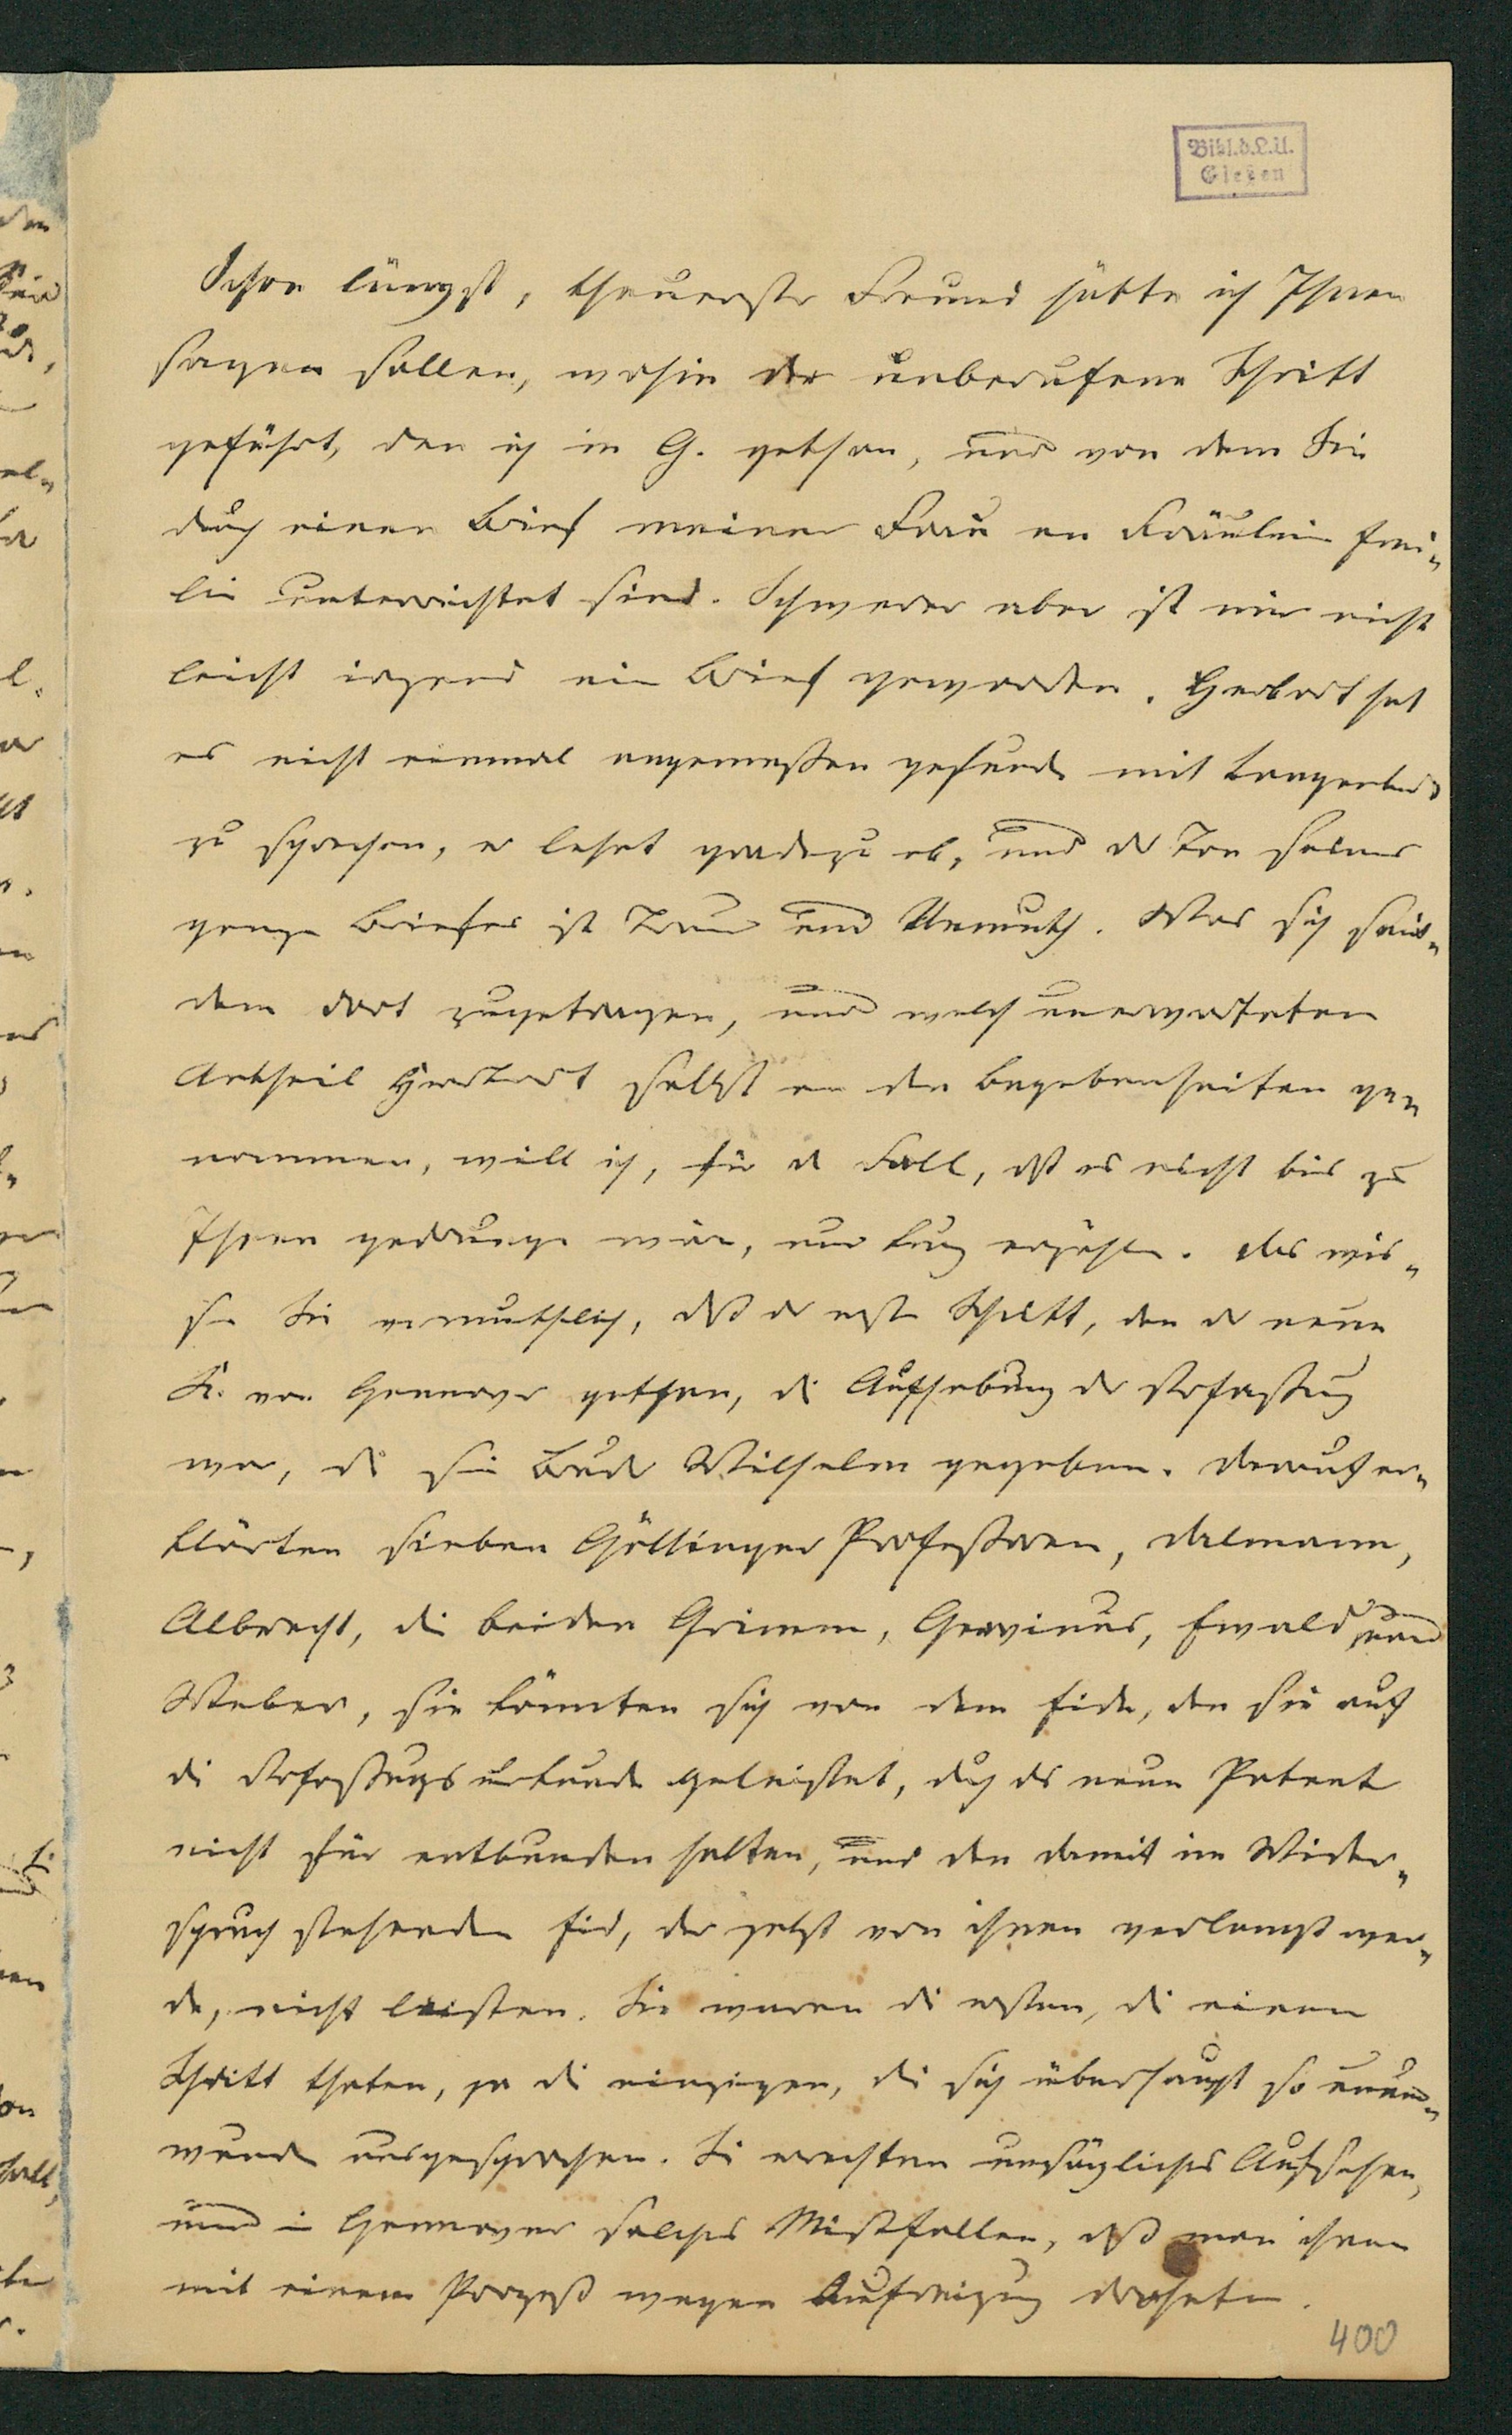 Bibl.d.L.U.
Gießen
Schon längst, theuerster Freund hätte ich Ihnen
sagen sollen, wohin der unberufene Schritt
geführt, den ich in G. gethan, und von dem Sie
durch einen Brief meiner Frau an Fräulein Emi-
lie unterrichtet sind. Schwerer aber ist mir nicht
leicht irgend ein Brief geworden. Herbart hat
es nicht einmal angemessen gefunden mit Langenbeck
zu sprechen, er lehnt gradezu ab, und der Ton seines
ganzen Briefes ist und Unmuth. Was sich seit-
dem dort zugetragen, und welch unerwarteten
Antheil Herbart selbst an den Begebenheiten ge-
nommen, will ich, für den Fall, daß es nicht bis zu
Ihnen gedrungen wäre, nur kurz erzählen. Das wis-
sen Sie vermuthlich, daß der erste Schritt, den der neue
K. von Hannover gethan, die Aufhebung der Verfassung
war, die sein Bruder Wilhelm gegeben. Darauf er-
klärten sieben Göttinger Professoren, Dalmann,
Albrecht, die beiden Grimm, Gervinus, Ewald und
Weber, sie könnten sich von dem Eide, den sie auf
die Verfassungsurkunde geleistet, durch das neue Patent
nicht für entbunden halten, und den damit im Wider-
spruch stehenden Eid, der jetzt von ihnen verlangt wer-
de, nicht leisten. Sie waren die ersten, die einen
Schritt thaten, ja die einzigen, die sich überhaupt so unum-
wunden ausgesprochen. Sie machten unsägliches Aufsehen,
und in Hannover solches Mißfallen, daß man ihnen
mit einem Prozeß wegen Aufreizung drohete.
400